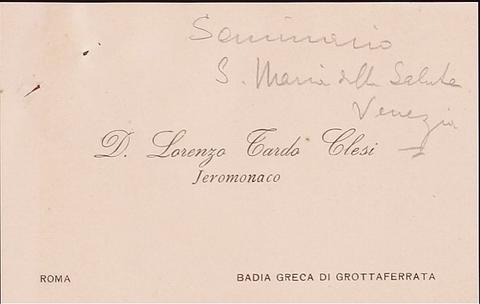 Seminario
S. Maria della Salute
Venezia
D. Lorenzo Tardo Clesi
Jeromonaco
ROMA
BADIA GRECA DI GROTTAFERRATA